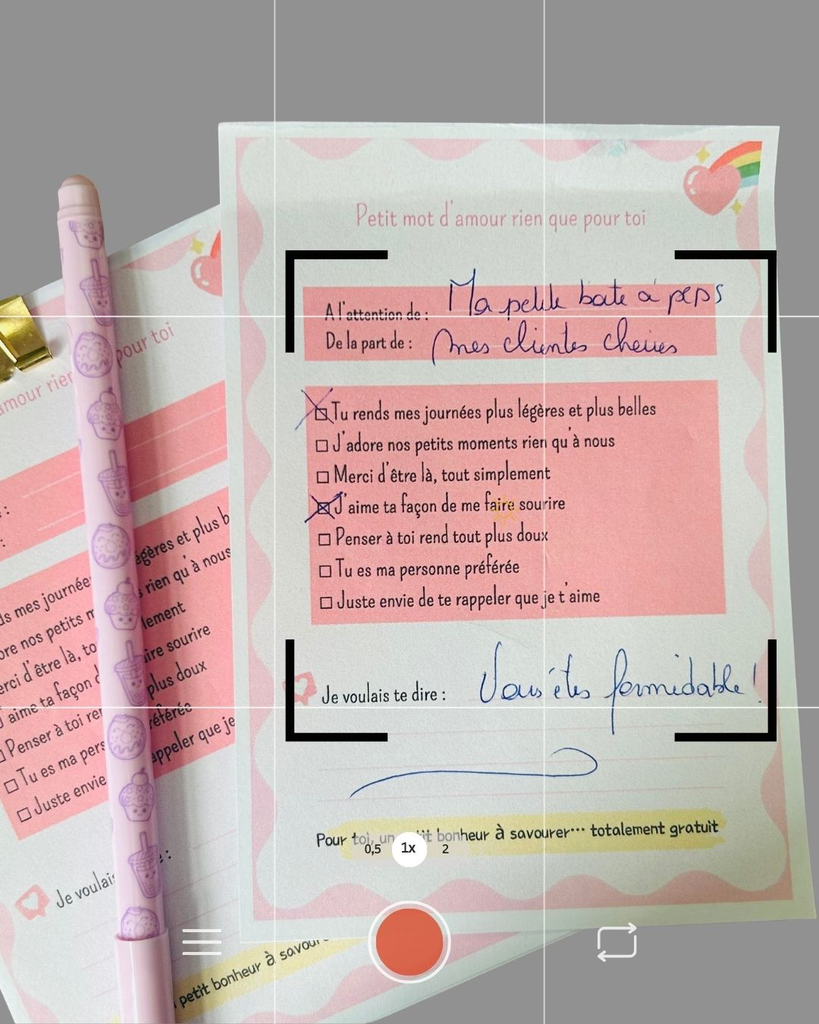 Petit mot d'amour rien que pour toi
A l'attention de : Ma petite boite à peps
De la part de : Mes clientes cheries
Tu rends mes journées plus légères et plus belles
J'adore nos petits moments rien qu'à nous
Merci d'être là, tout simplement
J'aime ta façon de me faire sourire
Penser à toi rend tout plus doux
Tu es ma personne préférée
Juste envie de te rappeler que je t'aime
Je voulais te dire : Vous êtes formidable !
Pour toi, un petit bonheur à savourer... totalement gratuit
0,5 1x 2
amour rien pour toi
ds mes journée gères et plus b
ore nos petits m s rien qu'à nous
erci d'être là, to lement
J'aime ta façon d ire sourire
Penser à toi ren plus doux
Tu es ma pers référée
Juste envie appeler que je
Je voulais :
petit bonheur à savour